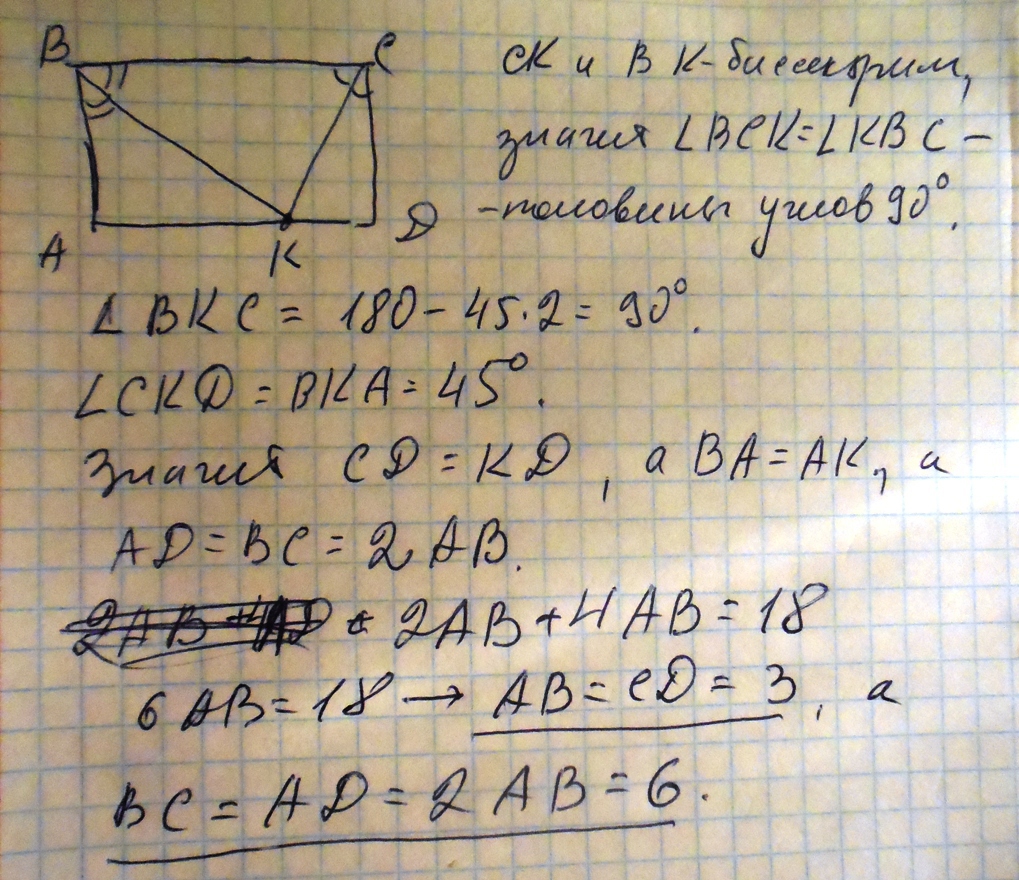 B C
A K D
CK и BK-биссектрисы,
значит ∠BCK=∠KBC –
-половины углов 90°.
∠BKC = 180-45·2= 90°.
∠CKD = BKA = 45°.
Значит CD = KD, а BA=AK, а
AD=BC=2AB.
2AB+4AB=18
6AB=18 → AB=CD=3, а
BC=AD=2AB=6.